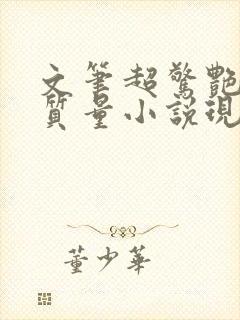 文筆超驚艷
質量小説現
董少華